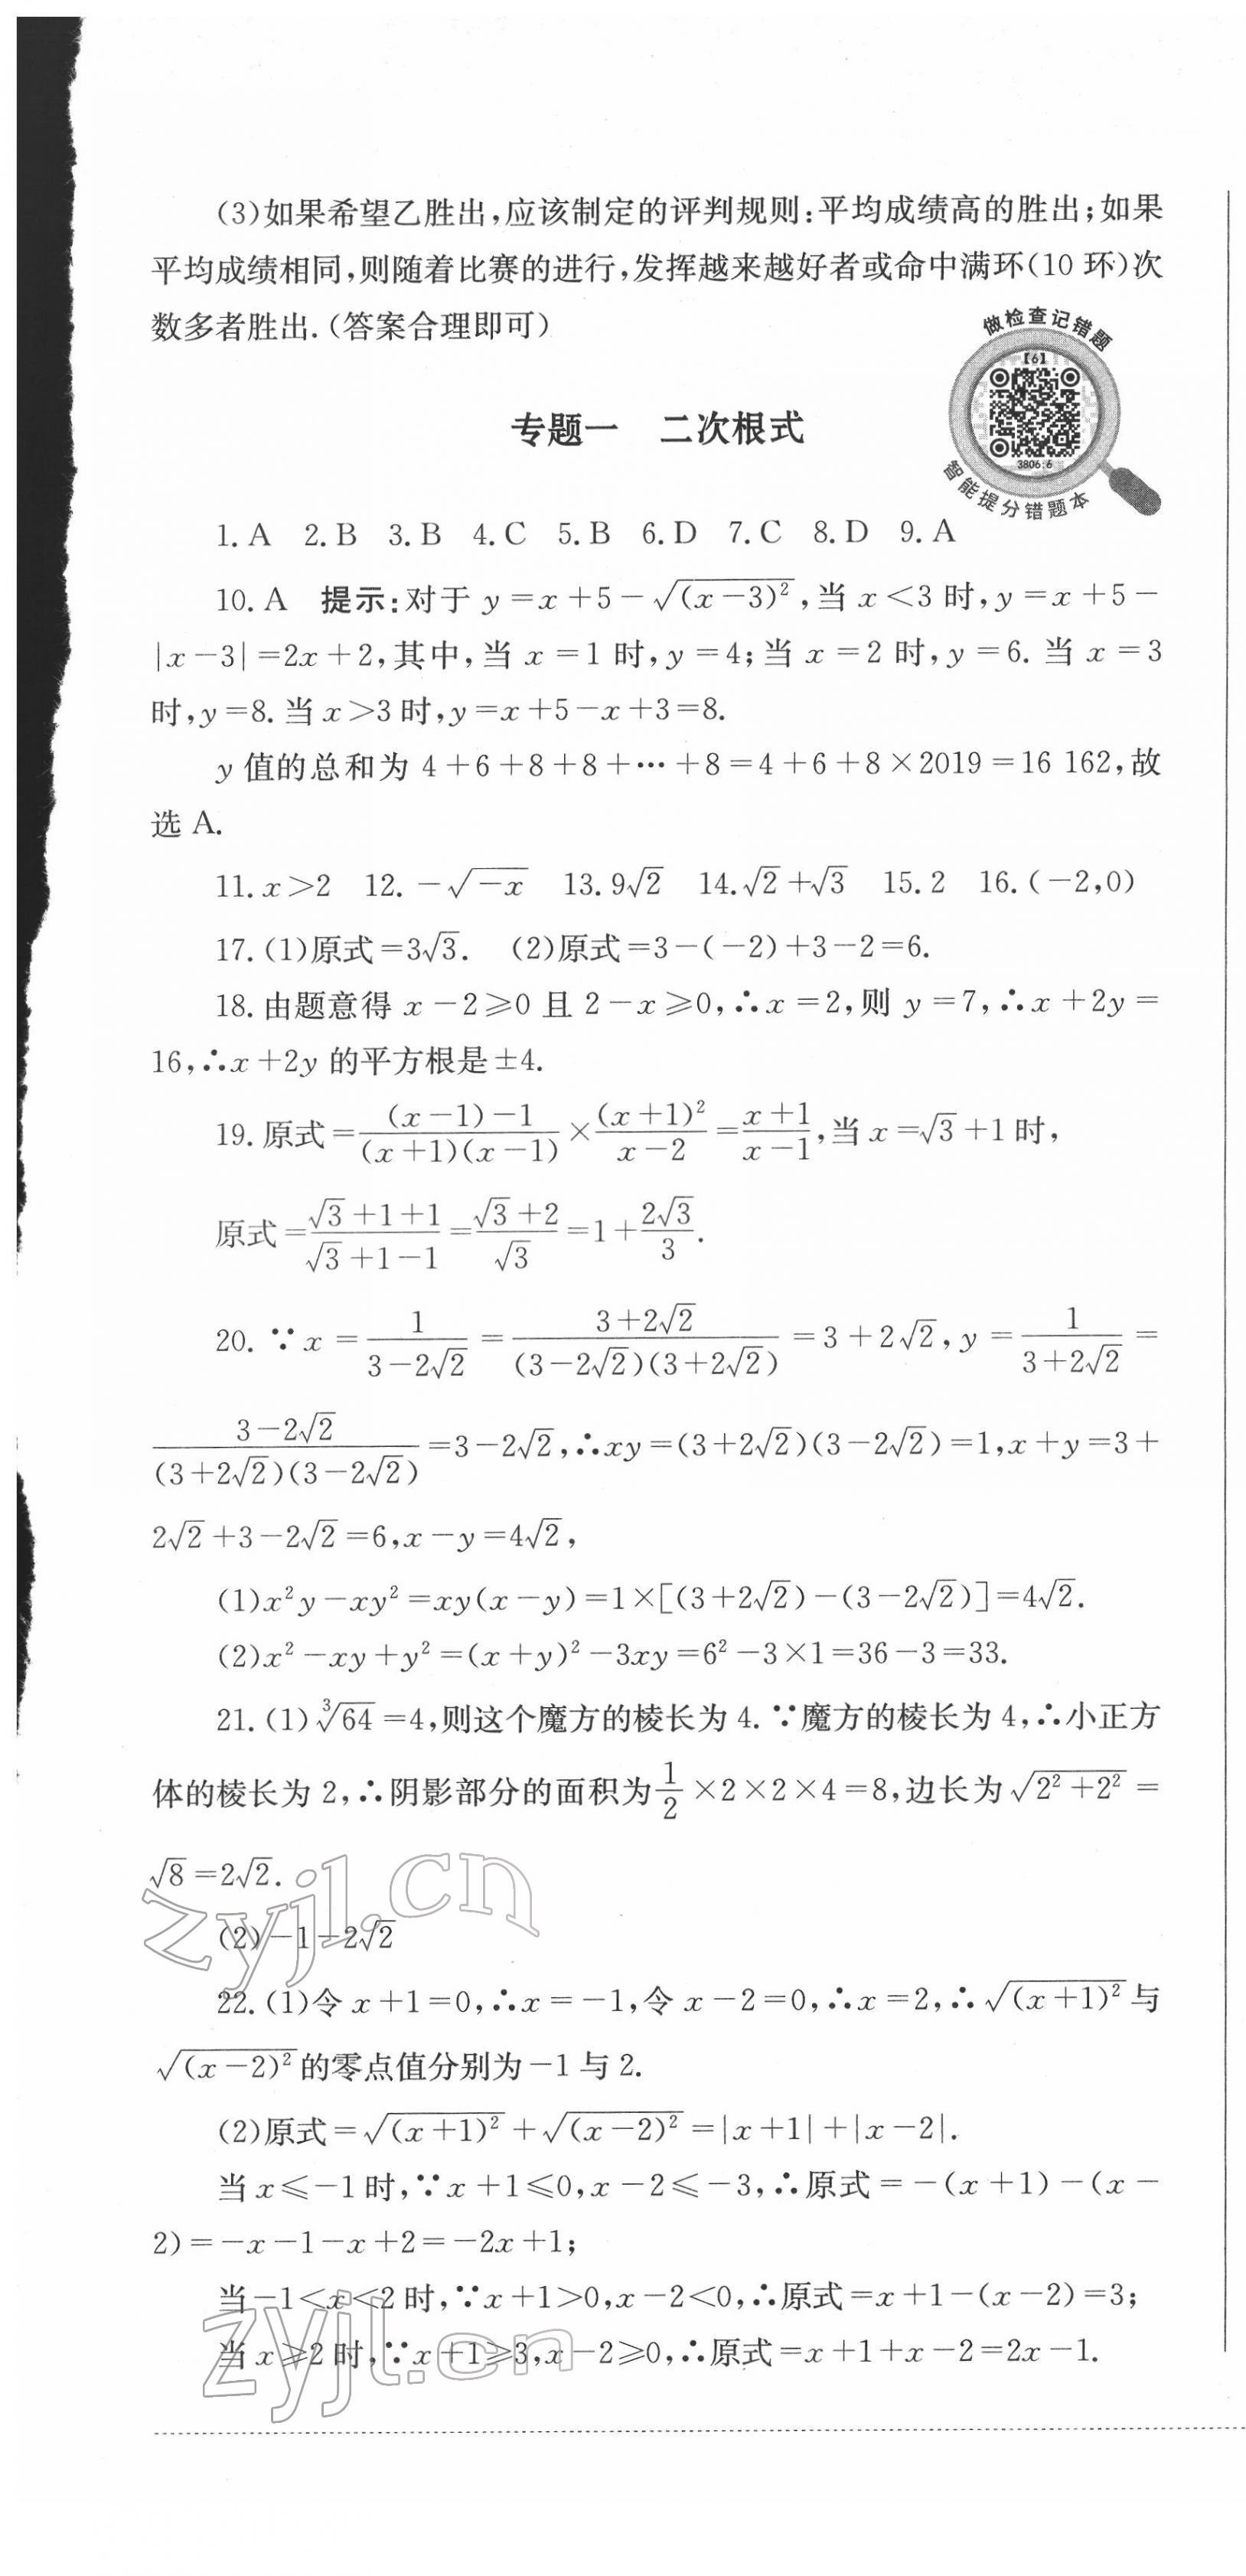 (3)如果希望乙胜出,应该制定的评判规则:平均成绩高的胜出;如果
平均成绩相同,则随着比赛的进行,发挥越来越好者或命中满环(10 环)次
数多者胜出.(答案合理即可)
做检查记错题
【6】
3806:6
智能提分错题本
专题一 二次根式
1. A 2. B 3. B 4. C 5. B 6. D 7. C 8. D 9. A
10. A 提示:对于 y=x+5-√(x-3)²,当 x<3 时,y=x+5-
|x-3|=2x+2,其中,当 x=1 时,y=4;当 x=2 时,y=6. 当 x=3
时,y=8. 当 x>3 时,y=x+5-x+3=8.
y 值的总和为 4+6+8+8+⋯+8=4+6+8×2019=16 162,故
选 A.
11. x>2 12. -√-x 13. 9√2 14. √2+√3 15. 2 16. (-2,0)
17. (1)原式=3√3. (2)原式=3-(-2)+3-2=6.
18. 由题意得 x-2≥0 且 2-x≥0,∴x=2,则 y=7,∴x+2y=
16,∴x+2y 的平方根是±4.
19. 原式=(x-1)-1/(x+1)(x-1)×(x+1)²/x-2=x+1/x-1,当 x=√3+1 时,
原式=√3+1+1/√3+1-1=√3+2/√3=1+2√3/3.
20. ∵x=1/3-2√2=3+2√2/(3-2√2)(3+2√2)=3+2√2,y=1/3+2√2=
3-2√2/(3+2√2)(3-2√2)=3-2√2,∴xy=(3+2√2)(3-2√2)=1,x+y=3+
2√2+3-2√2=6,x-y=4√2,
(1)x²y-xy²=xy(x-y)=1×[(3+2√2)-(3-2√2)]=4√2.
(2)x²-xy+y²=(x+y)²-3xy=6²-3×1=36-3=33.
21. (1)∛64=4,则这个魔方的棱长为 4. ∵魔方的棱长为 4,∴小正方
体的棱长为 2,∴阴影部分的面积为1/2×2×2×4=8,边长为√2²+2²=
√8=2√2.
(2)-1-2√2
22. (1)令 x+1=0,∴x=-1,令 x-2=0,∴x=2,∴√(x+1)²与
√(x-2)²的零点值分别为-1 与 2.
(2)原式=√(x+1)²+√(x-2)²=|x+1|+|x-2|.
当 x≤-1 时,∵x+1≤0,x-2≤-3,∴原式=-(x+1)-(x-
2)=-x-1-x+2=-2x+1;
当-1<x<2 时,∵x+1>0,x-2<0,∴原式=x+1-(x-2)=3;
当 x≥2 时,∵x+1≥3,x-2≥0,∴原式=x+1+x-2=2x-1.
zyjl.cn
zyjl.cn